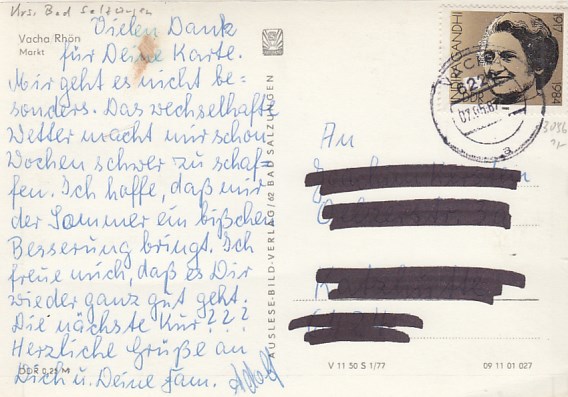 Krs. Bad Salzungen
Vacha Rhön
Markt
Vielen Dank
für Deine Karte.
Mir geht es nicht be-
sonders. Das wechselhafte
Wetter macht mir schon
Wochen schwer zu schaf-
fen. Ich hoffe, daß mir
der Sommer ein bißchen
Besserung bringt. Ich
freue mich, daß es Dir
wieder ganz gut geht.
Die nächste Kur???
Herzliche Grüße an
Dich u. Deine Fam. Adolf
DDR 0,25 M
AUSLESE-BILD-VERLAG/62 BAD SALZUNGEN
INDIRA GANDHI
1917
1984
DDR
07.05.87
a
An
V 11 50 S 1/77
09 11 01 027